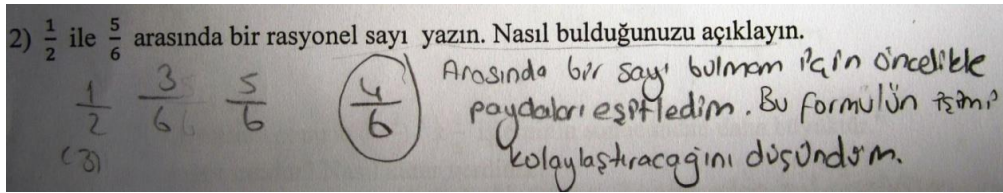 2) 1/2 ile 5/6 arasında bir rasyonel sayı yazın. Nasıl bulduğunuzu açıklayın.
1/2 3/6 5/6 4/6 Arasında bir sayı bulmam için öncelikle
(3) paydaları eşitledim. Bu formülün işimi
kolaylaştıracağını düşündüm.